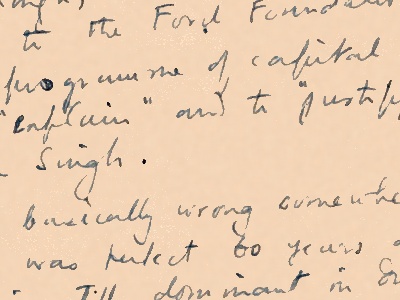 to the Ford Foundation
programme of capital
"explain" and to "justify
Singh.
basically wrong somewhere
was perfect 60 years
Till dominant in